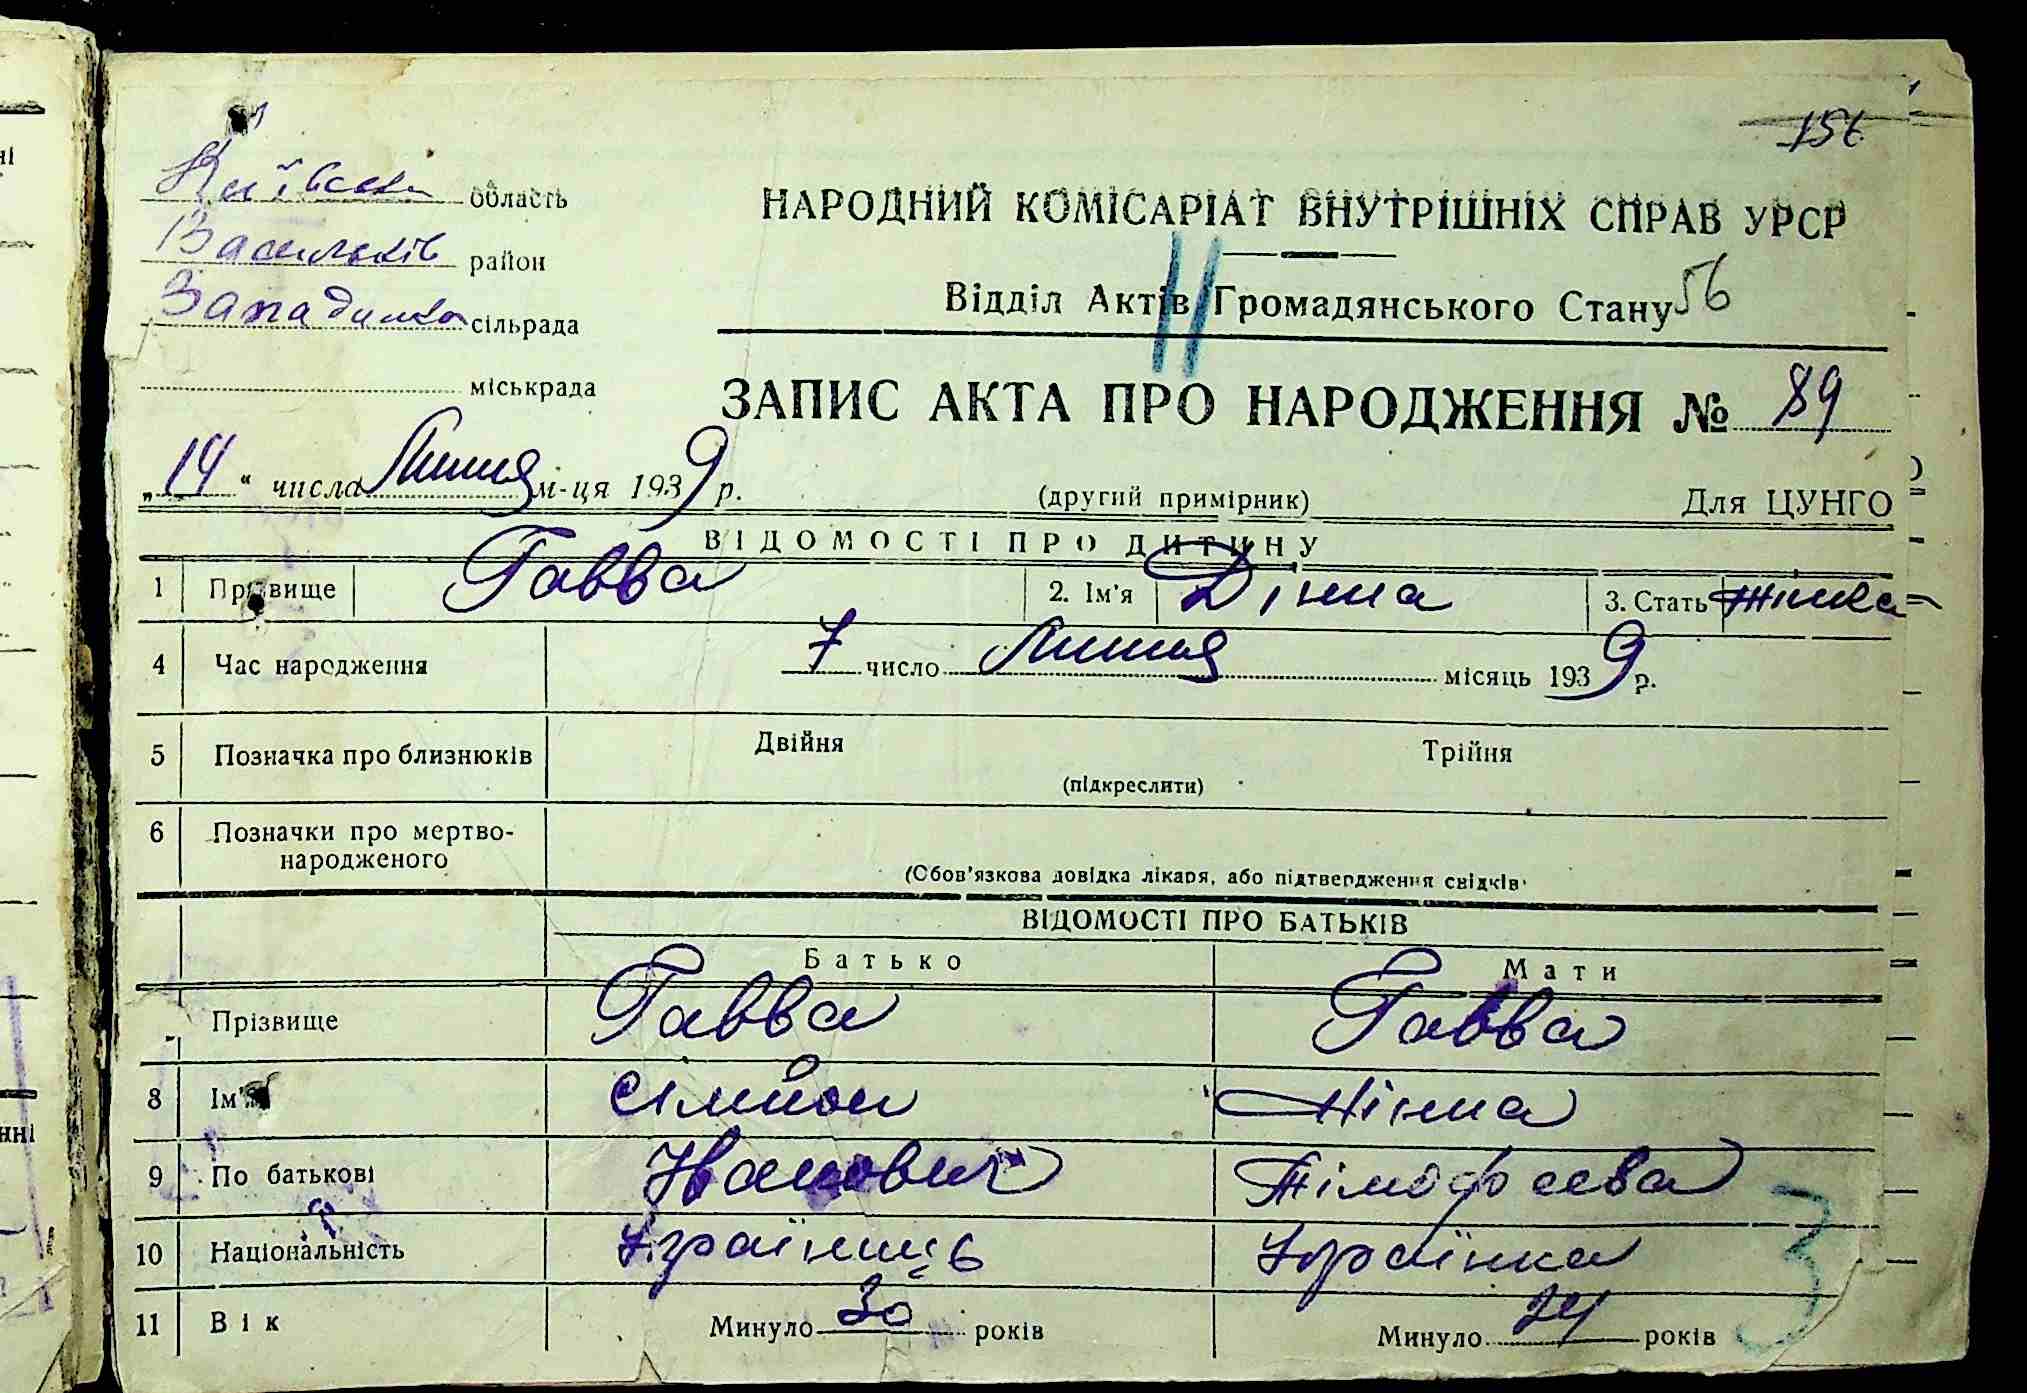 156
Київська область
Васильків район
Западинка сільрада
міськрада
НАРОДНИЙ КОМІСАРІАТ ВНУТРІШНІХ СПРАВ УРСР
Відділ Актів Громадянського Стану 56
ЗАПИС АКТА ПРО НАРОДЖЕННЯ № 89
„14“ числа Липня м-ця 1939 р.
(другий примірник)
Для ЦУНГО
ВІДОМОСТІ ПРО ДИТИНУ
1 Прізвище Гавва 2. Ім'я Дінна 3. Стать жінка
4 Час народження 7 число Липня місяць 1939 р.
5 Позначка про близнюків Двійня Трійня
(підкреслити)
6 Позначки про мертво-
народженого
(Обов'язкова довідка лікаря, або підтвердження свідків)
ВІДОМОСТІ ПРО БАТЬКІВ
Батько Мати
Прізвище Гавва Гавва
8 Ім'я Сімйон Нінна
9 По батькові Іванович Тімофеева
10 Національність Українець Українка
11 Вік Минуло 30 років Минуло 24 років
3